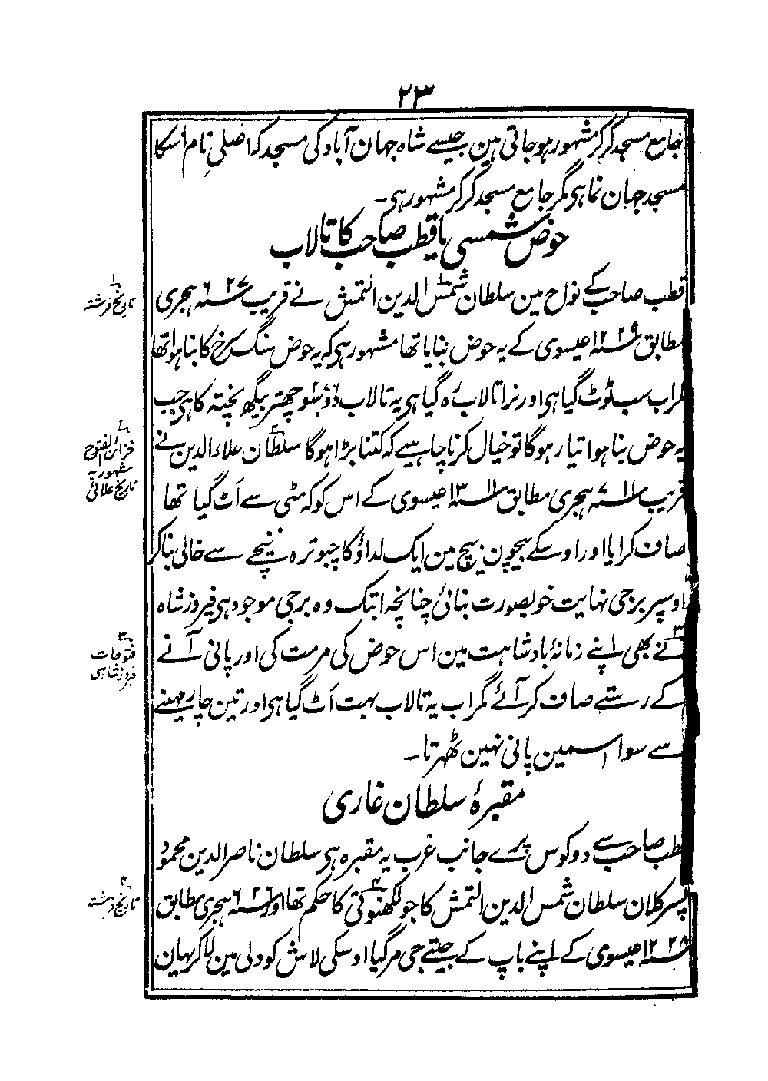 ۲۳
جامع مسجد کر کر مشہور ہو جاتی ہین جیسے شاہ جہان آباد کی مسجد کہ اصلی نام اسکا
مسجد جہان نما ہی مگر جامع مسجد کر کر مشہور ہی۔
حوض شمسی یا قطب صاحب کا تالاب
قطب صاحب کے نواح مین سلطان شمس الدین التمش نے قریب ۶۲۷ ہجری
مطابق ۱۲۲۹ عیسوی کے یہ حوض بنایا تھا مشہور ہی کہ یہ حوض سنگ سرخ کا بنا ہوا تھا
مگر اب سب ٹوٹ گیا ہی اور نرا تالاب رہ گیا ہی یہ تالاب دو سو چھتر بیگھ پختہ کا ہی جب
یہ حوض بنا ہوا تیار ہوگا تو خیال کرنا چاہیے کہ کتنا بڑا ہوگا سلطان علاء الدین نے
قریب ۷۱۱ ہجری مطابق ۱۳۱۱ عیسوی کے اس کو کہ مٹی سے اَٹ گیا تھا
صاف کرایا اور اوسکے بیچون بیچ مین ایک لداؤ کا چبوترہ نیچے سے خالی بناکر
اوسپر برجی نہایت خوبصورت بنائی چنانچہ ابتک وہ برجی موجود ہی فیروز شاہ
نے بھی اپنے زمانۂ بادشاہت مین اس حوض کی مرمت کی اور پانی آنے
کے رستے صاف کرائے مگر اب یہ تالاب بہت اَٹ گیا ہی اور تین چار مہینے
سے سوا اسمین پانی نہین ٹھرتا۔
مقبرۂ سلطان غاری
قطب صاحب سے دو کوس پرے جانب غرب یہ مقبرہ ہی سلطان ناصر الدین محمود
پسر کلان سلطان شمس الدین التمش کا جو لکھنوتی کا حکم تھا اور ۶۲۶ ہجری مطابق
۱۲۲۸ عیسوی کے اپنے باپ کے جیتے جی مر گیا اوسکی لاش کو دلی مین لاکر یہان
۱ تاریخ فرشتہ
۲ خزائن الفتوح
مشہور بہ
تاریخ علائی
۳ فتوحات
فیروز شاہی
۴ تاریخ فرشتہ